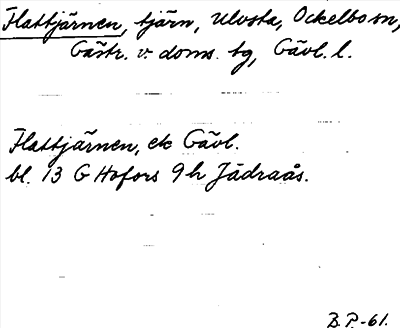 Flattjärnen, tjärn, Ulvsta, Ockelbo sn,
Gästr. v. doms. tg, Gävl. l.
Flattjärnen, ek Gävl.
bl. 13 G Hofors 9 h Jädraås.
B.P.-61.